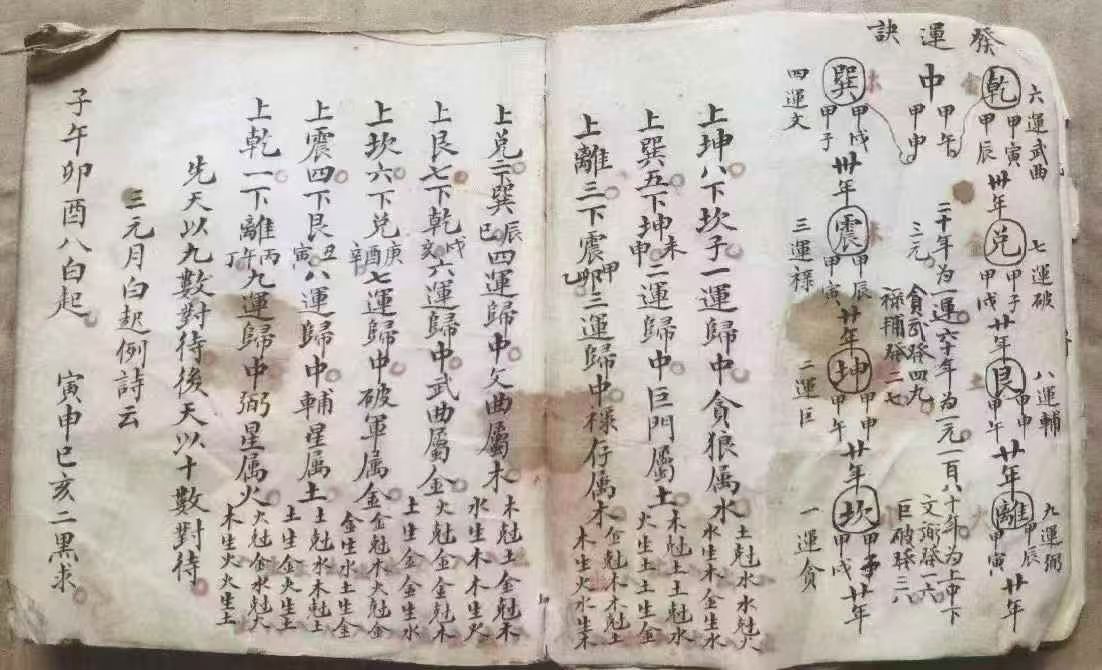 發運訣
六運武曲
乾
金
甲寅
甲辰
卅年
七運破
兌
金
甲子
甲戌
廿年
八運輔
艮
土
甲申
甲午
廿年
九運弼
離
火
甲辰
甲寅
廿年
中
甲午
甲申
二十年為一運六十年為一元一百八十年為上中下
三元
貪武發四九
祿輔發二七
文弼發一六
巨破發三八
四運文
巽
木
甲戌
甲子
卅年
三運禄
震
木
甲辰
甲寅
廿年
二運巨
坤
甲申
甲午
廿年
一運貪
坎
甲子
甲戌
廿年
上坤八下坎子一運歸中貪狼属水
土尅水水尅火
水生木金生水
上巽五下坤未申二運歸中巨門屬土
木尅土土尅水
火生土土生金
上離三下震甲卯乙三運歸中禄存属木
金尅木木尅土
木生火水生木
上兌二下巽辰巳四運歸中文曲屬木
木尅土金尅木
水生木木生火
上艮七下乾戌亥六運歸中武曲屬金
火尅金金尅木
土生金金生水
上坎六下兌庚酉辛七運歸中破軍属金
金尅木火尅金
金生水土生金
上震四下艮丑寅八運歸中輔星属土
土尅水木尅土
土生金火生土
上乾一下離丙午丁九運歸中弼星属火
火尅金水尅火
木生火火生土
先天以九數對待後天以十數對待
三元月白起例詩云
子午卯酉八白起 寅申巳亥二黑求